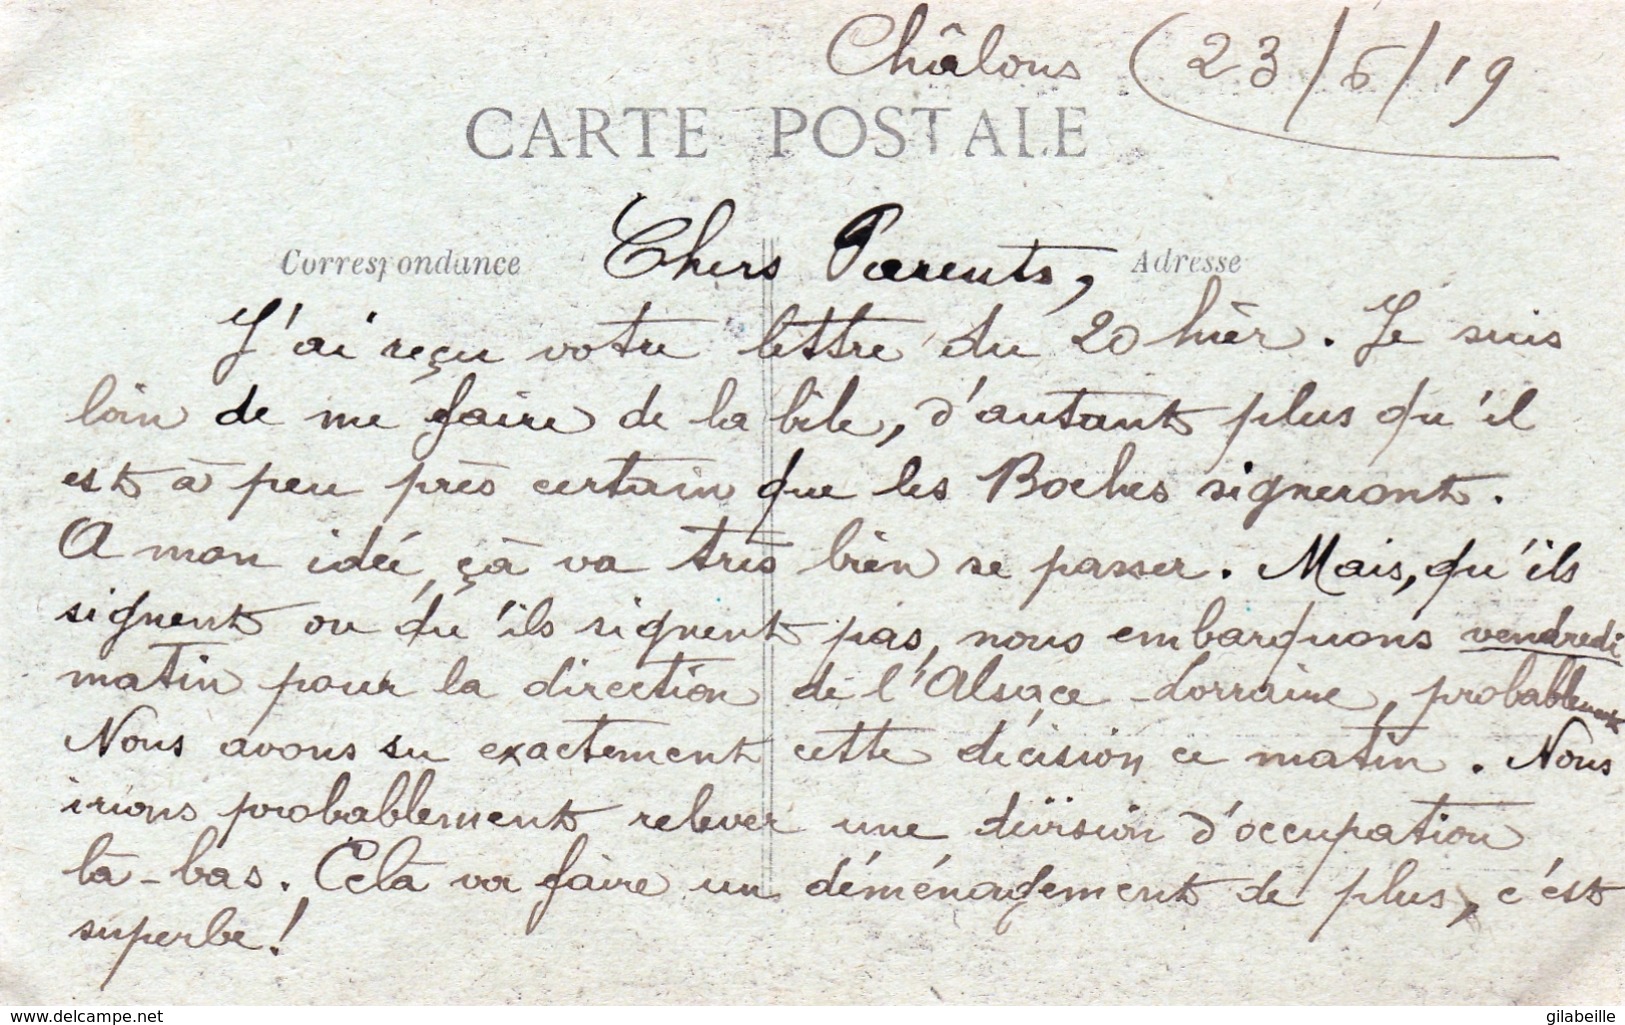 Châlons (23/6/19
CARTE POSTALE
Correspondance Chers Parents, Adresse
J'ai reçu votre lettre du 20 hier. Je suis
loin de me faire de la bile, d'autant plus qu'il
est à peu près certain que les Boches signeront.
A mon idée, çà va très bien se passer. Mais, qu'ils
signent ou qu'ils signent pas, nous embarquons vendredi
matin pour la direction de l'Alsace-Lorraine, probablement
Nous avons su exactement cette décision ce matin. Nous
irions probablement relever une division d'occupation
là-bas. Celà va faire un déménagement de plus, c'est
superbe!
www.delcampe.net gilabeille